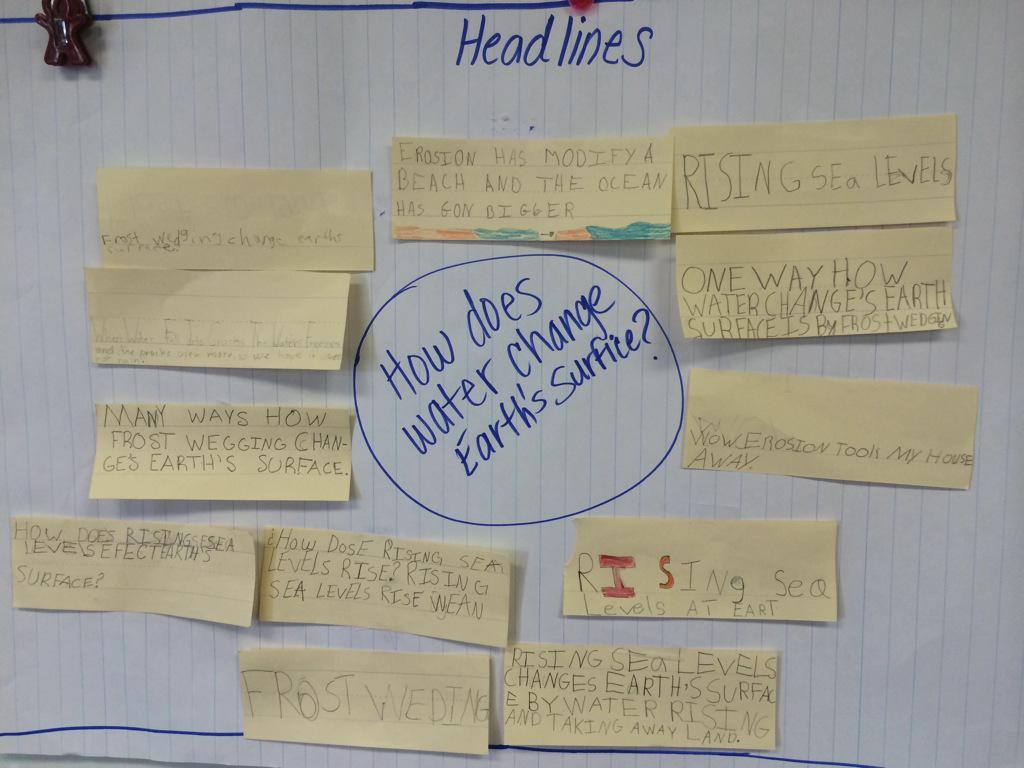 Headlines
EROSION HAS MODIFY A
BEACH AND THE OCEAN
HAS GON BIGGER
RISING SEa LEVELS
Frost wedging change earths
ONE WAY HOW
WATER CHANGE'S EARTH
SURFACE IS BY FROST WEDGEN
How does
water change
Earth's surfice?
When Water
MANY WAYS HOW
FROST WEGGING CHAN-
GE'S EARTH'S SURFACE.
WOW EROSION TOOK MY HOUSE
AWAY.
HOW DOES RISING SEA
LEVELS EFECT EARTH'S
SURFACE?
¿HOW DOSE RISING SEA
LEVELS RISE? RISING
SEA LEVELS RISE WEAN
RISING Sea
Levels AT EART
FROST WEDING
RISING SEa LEVELS
CHANGES EARTH'S SURFAC
E BY WATER RISING
AND TAKING AWAY LAND.